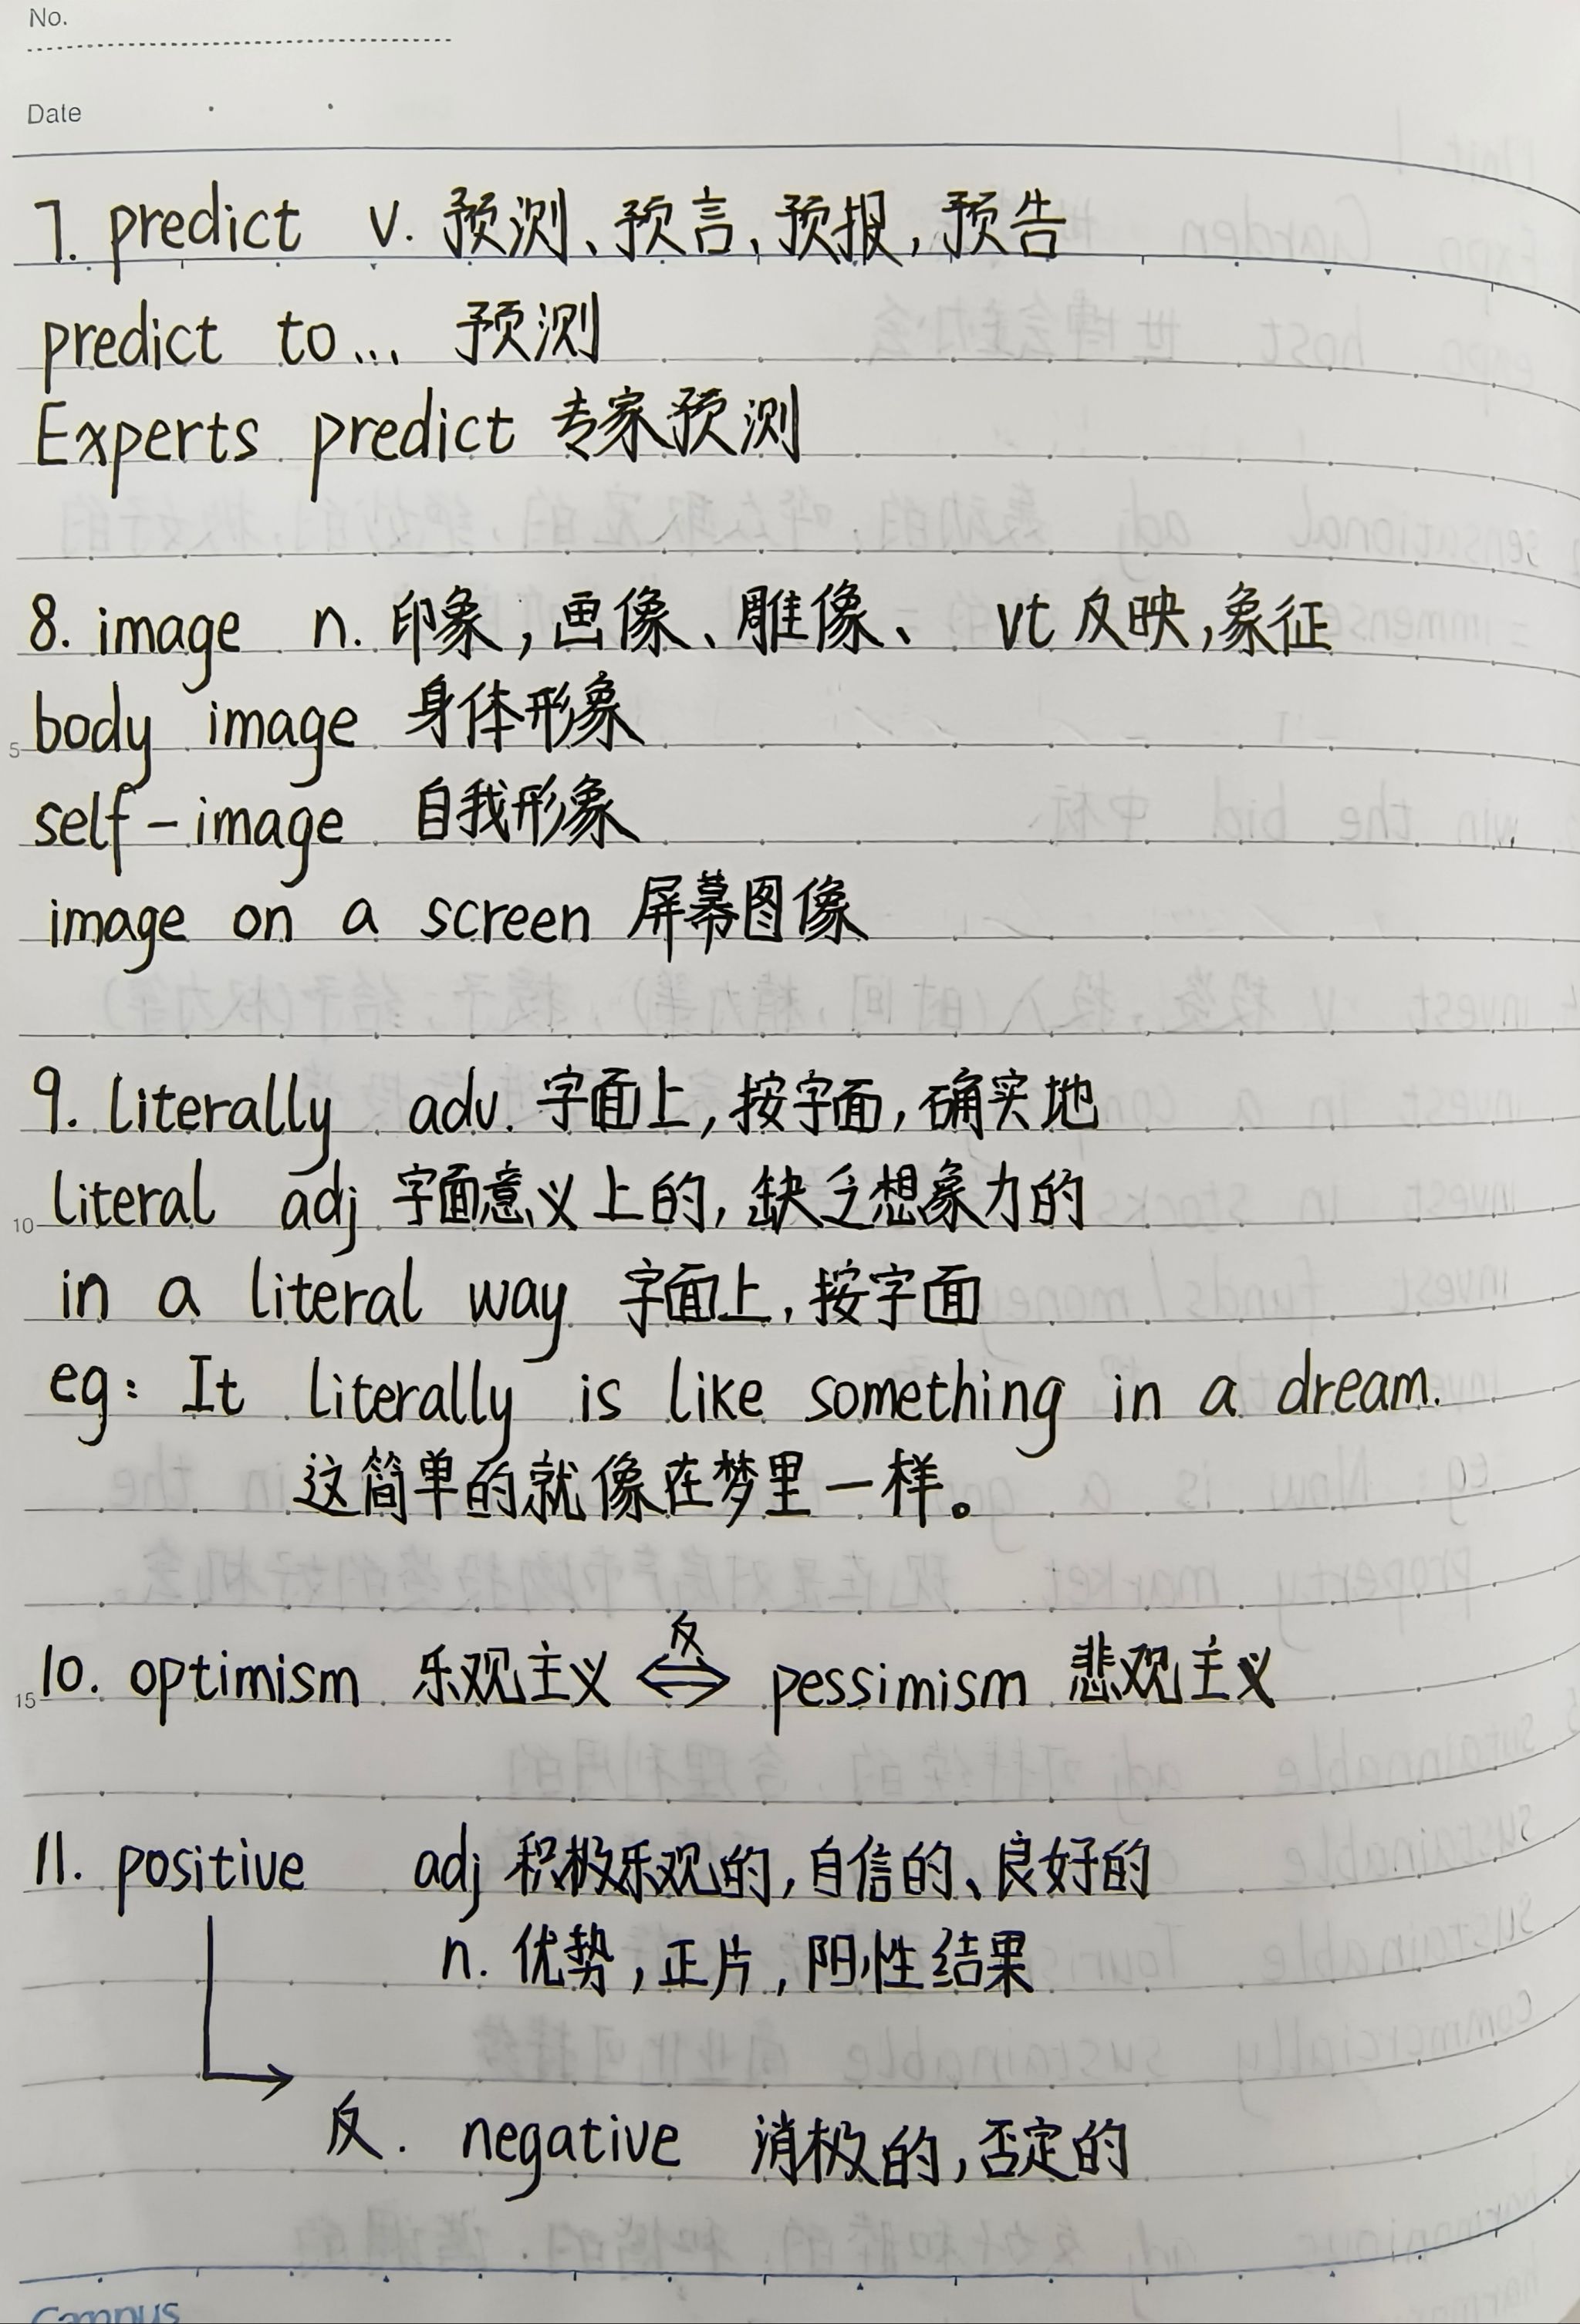 No.
Date
7. predict v. 预测、预言,预报,预告
predict to... 预测
Experts predict 专家预测
8. image n. 印象,画像、雕像、 vt 反映,象征
5 body image 身体形象
self-image 自我形象
image on a screen 屏幕图像
9. literally adv. 字面上,按字面,确实地
10 literal adj 字面意义上的,缺乏想象力的
in a literal way 字面上,按字面
eg: It literally is like something in a dream.
这简单的就像在梦里一样。
反
15 10. optimism 乐观主义 ⇔ pessimism 悲观主义
11. positive adj 积极乐观的,自信的、良好的
n. 优势,正片,阳性结果
反. negative 消极的,否定的
Campus